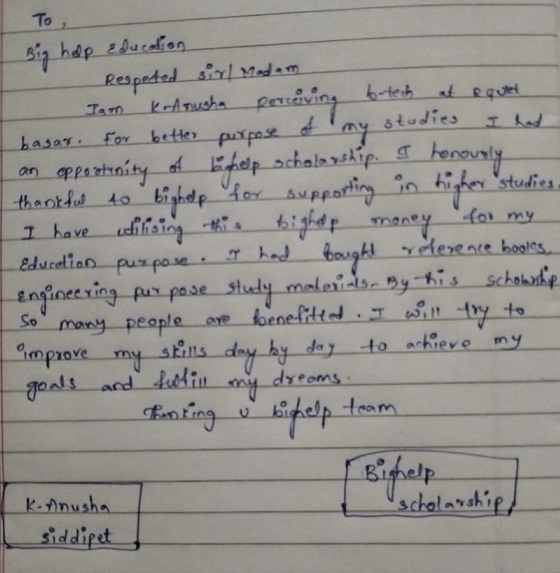 To,
Big help Education
Respeted sir/Madam
Iam K-Anusha perceiving b-tech at RGUKT
basar. For better purpose of my studies I had
an opportinity of bighelp scholarship. I honourly
thankful to bighelp for supporting in higher studies.
I have utilising this bighelp money for my
Education purpose. I had bought reference books,
engineering purpose study materials. By this scholarship
So many people are benefitted. I will try to
improve my skills day by day to achieve my
goals and fulfill my dreams.
Thanking u bighelp team
Bighelp
scholarship
K-Anusha
siddipet